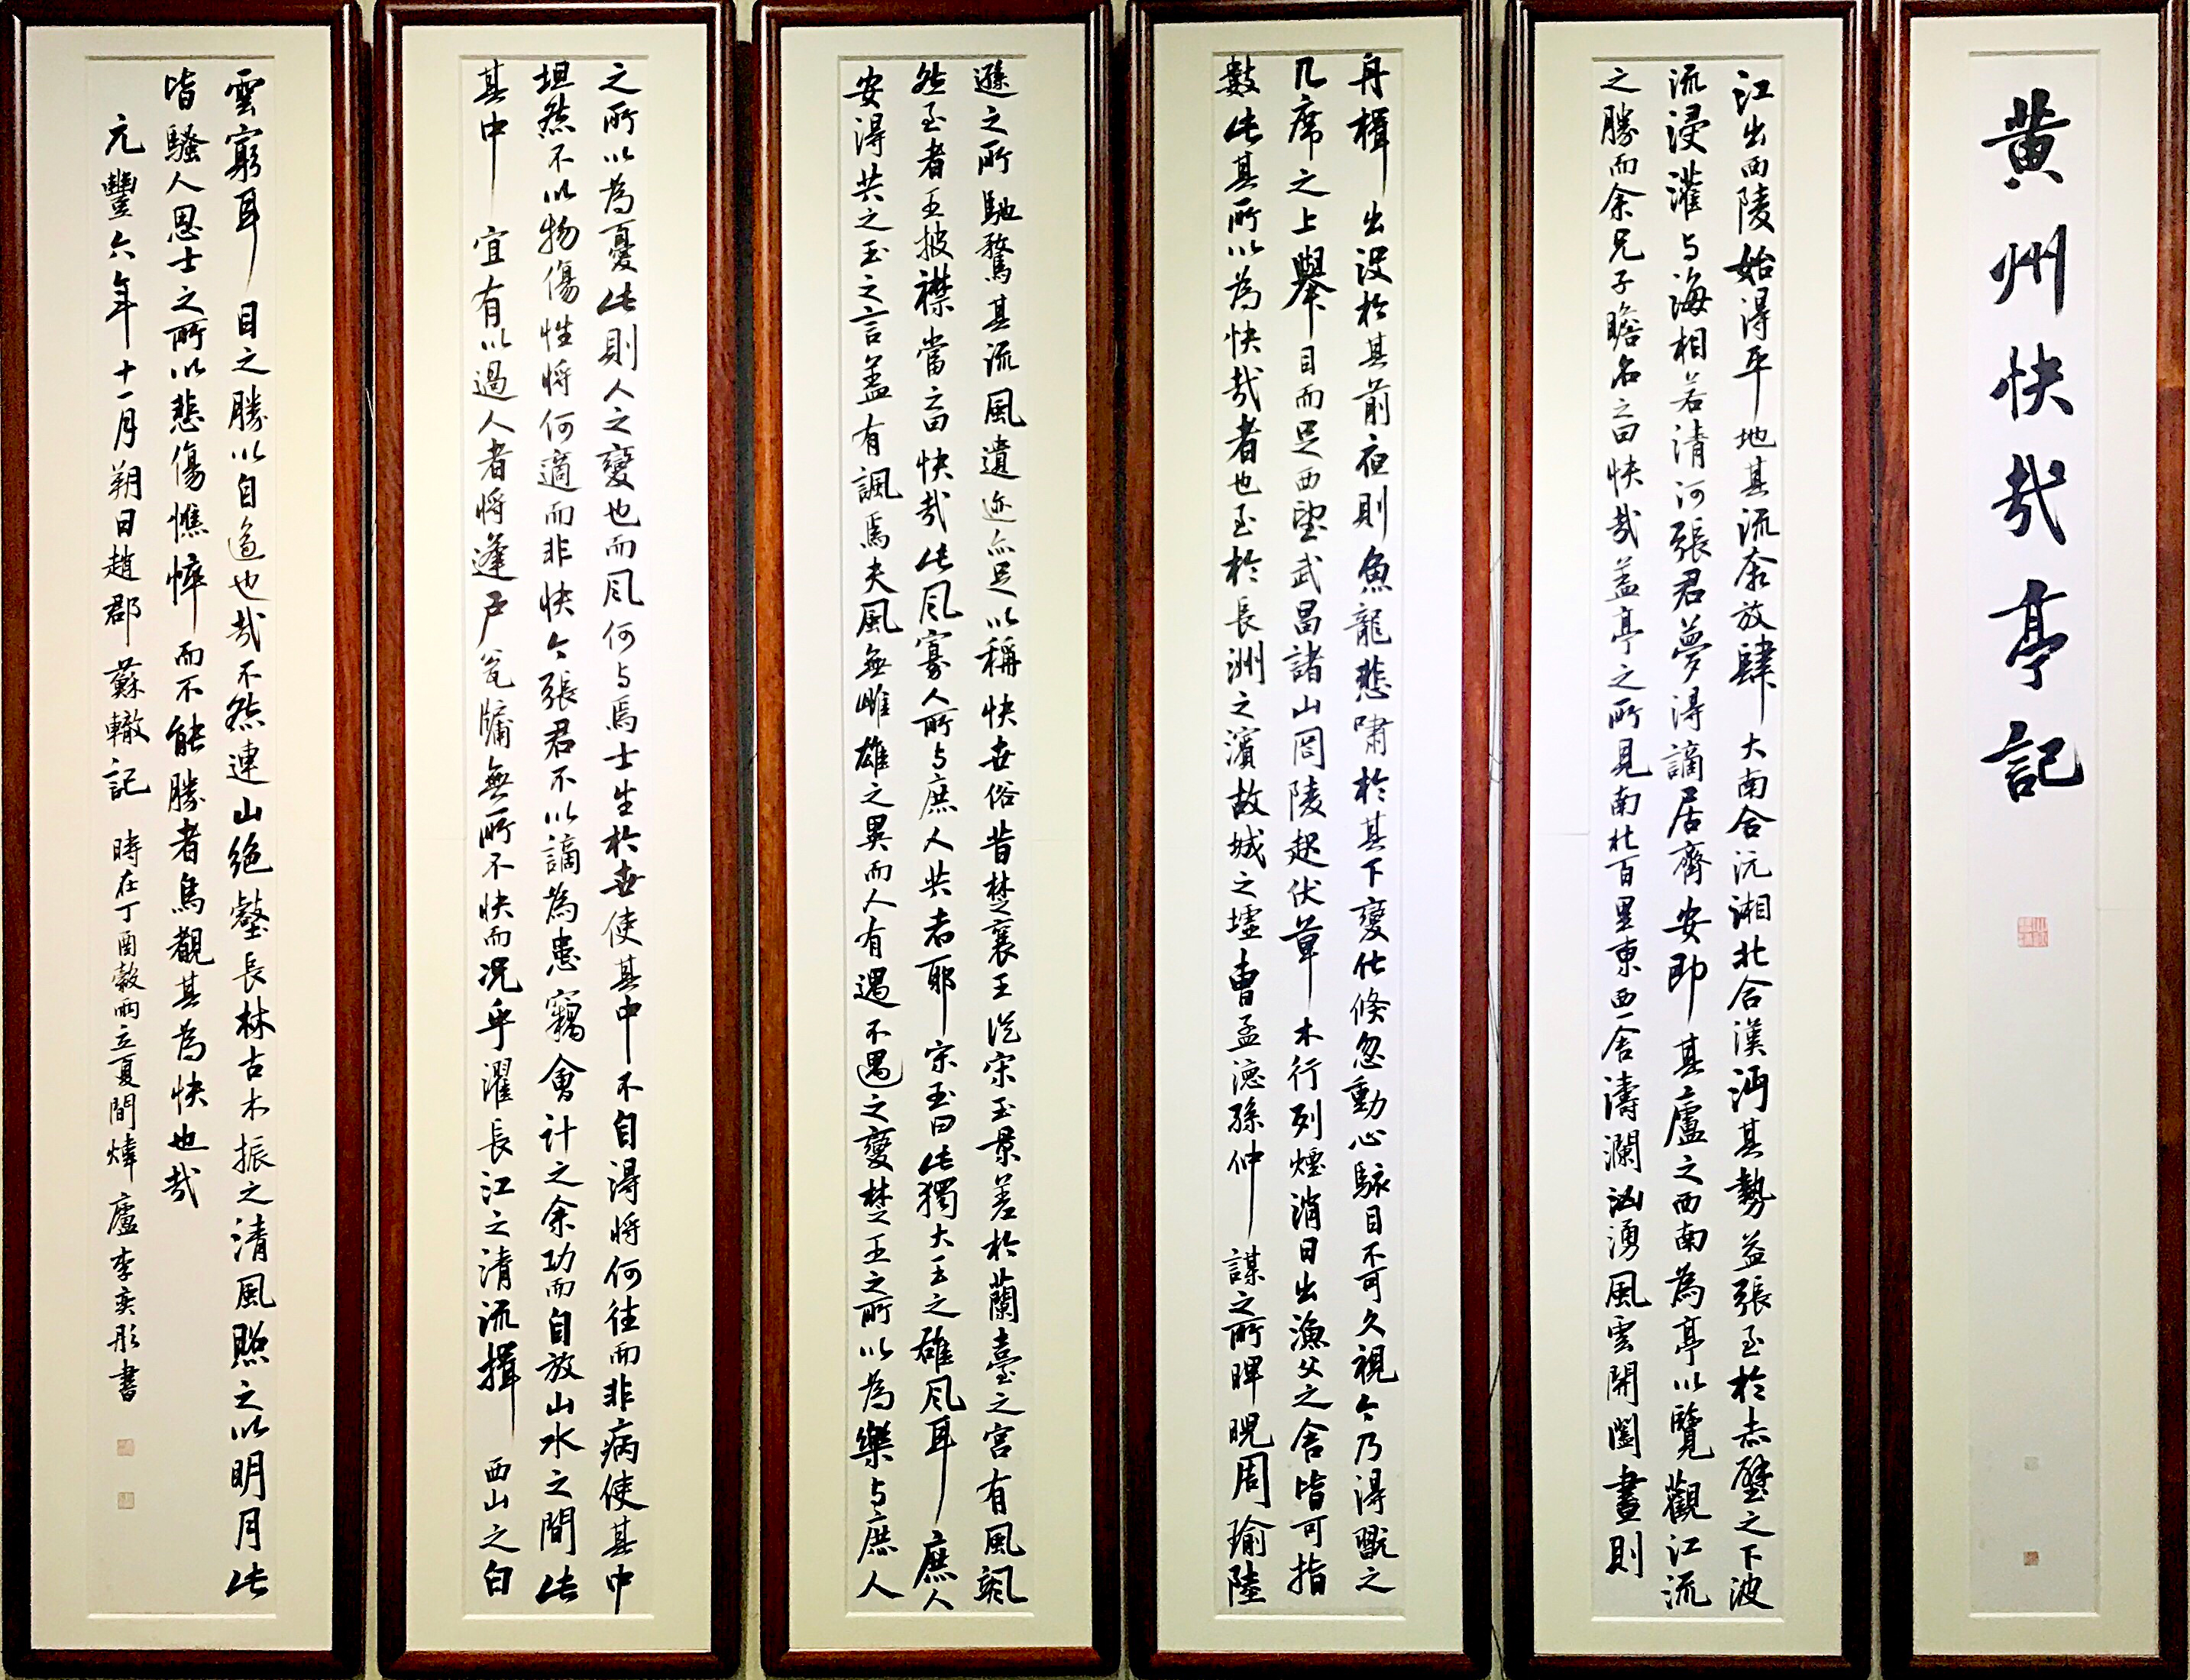 黄州快哉亭記
江出西陵始得平地其流奔放肆大南合沅湘北合漢沔其勢益張至於赤壁之下波
流浸灌与海相若清河張君夢得謫居齊安即其廬之西南為亭以覽觀江流
之勝而余兄子瞻名之曰快哉蓋亭之所見南北百里東西一舍濤瀾洶湧風雲開闔晝則
舟楫出沒於其前夜則魚龍悲嘯於其下變化倏忽動心駭目不可久視今乃得翫之
几席之上舉目而足西望武昌諸山岡陵起伏草木行列煙消日出漁父之舍皆可指
數此其所以為快哉者也至於長洲之濱故城之墟曹孟德孫仲謀之所睥睨周瑜陸
遜之所馳騖其流風遺迹亦足以稱快世俗昔楚襄王從宋玉景差於蘭臺之宮有風颯
然至者王披襟當之曰快哉此风寡人所与庶人共者耶宋玉曰此獨大王之雄风耳庶人
安得共之玉之言蓋有諷焉夫風無雌雄之異而人有遇不遇之變楚王之所以為樂与庶人
之所以為憂此則人之變也而风何与焉士生於世使其中不自得將何往而非病使其中
坦然不以物傷性將何適而非快今張君不以謫為患竊會計之余功而自放山水之間此
其中宜有以過人者將蓬户瓮牖無所不快而况乎濯長江之清流揖西山之白
雲窮耳目之勝以自適也哉不然連山绝壑長林古木振之清風照之以明月此
皆騷人思士之所以悲傷憔悴而不能勝者烏觀其為快也哉
元豐六年十一月朔日趙郡蘇轍記 時在丁酉穀雨立夏間煒廬李奕彤書